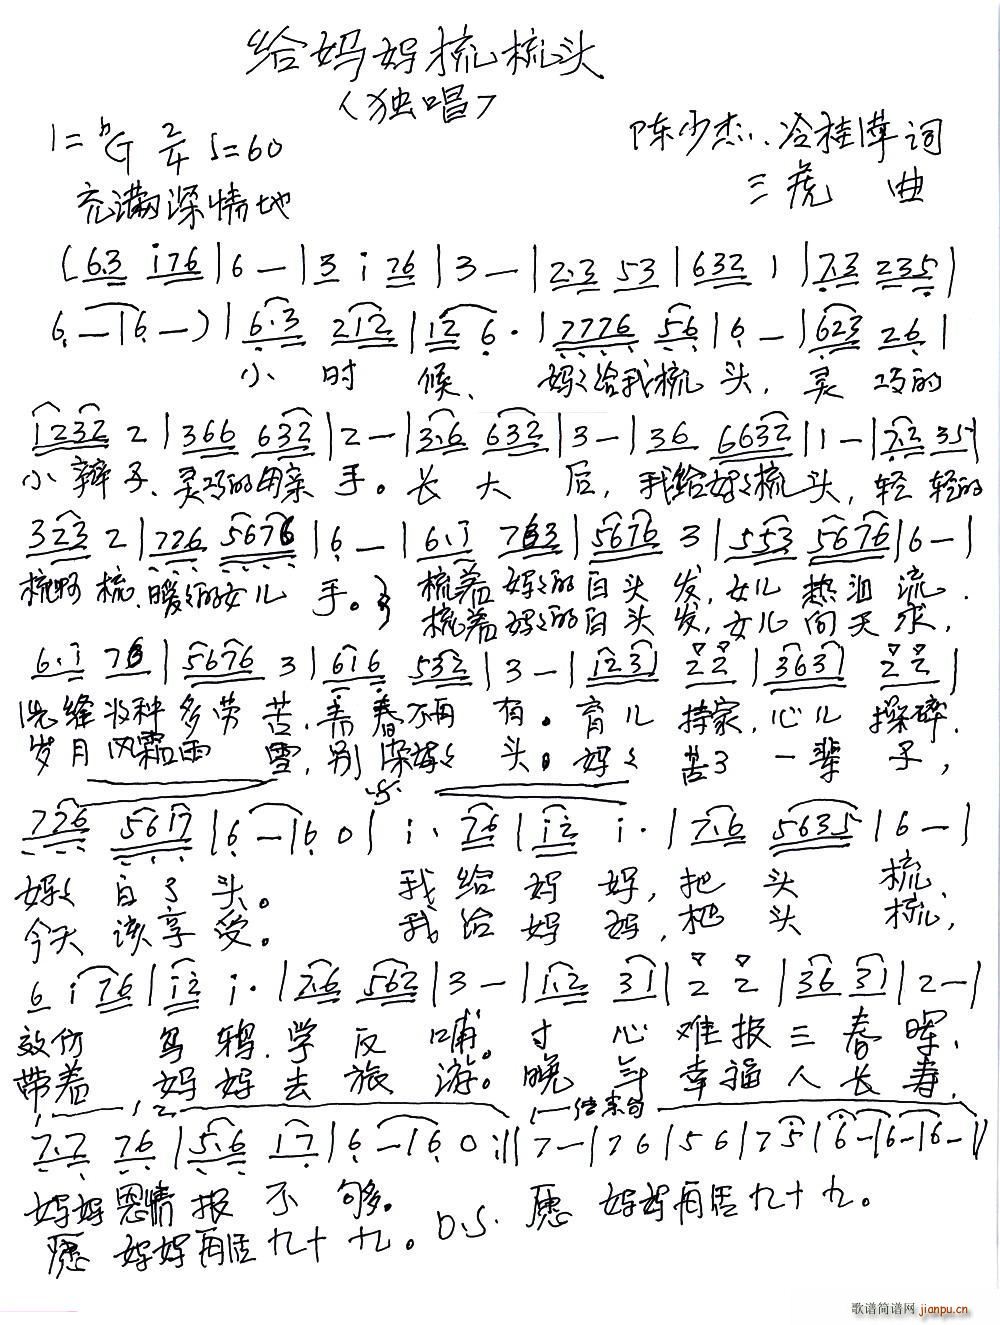 给妈妈梳梳头
(独唱)
1=bG 2/4 ♩=60
陈少杰、冷桂萍词
充满深情地
三虎 曲
(6.3 i76|6—|3 i 76|3—|2.3 53|632 1|7.3 235|
6—|6—)|6.3 212|12 6·|7776 56|6—|623 26|
小 时 候、 妈妈给我梳 头, 灵 巧的
1232 2|366 632|2—|3.6 632|3—|36 6632|1—|7.2 35|
小 辫 子、灵巧的母亲 手。长 大 后, 我给妈妈梳 头, 轻 轻的
323 2|726 5676|6—|6.i 763|5676 3|553 5676|6—|
梳啊 梳、暖暖的女儿 手。 梳着 妈妈的白头 发, 女儿 热泪 流.
梳着 妈妈的白头 发, 女儿 向天 求,
6.i 76|5676 3|616 532|3—|1231 22|3631 22|
洗缝 种 多劳 苦, 青春不再 有。育儿 持家, 心儿 操碎.
岁月风霜雨 雪, 别染妈妈 头。妈妈 苦了 一辈 子,
726 5617|6—|6 0|i· 76|i2 i·|7.6 5635|6—|
妈妈 白了 头。 我 给 妈 妈, 把 头 梳、
今天 该享 受。 我 给 妈 妈, 把 头 梳,
6 i 76|i2 i·|7.6 562|3—|1.2 31|2 2|36 31|2—|
效仿 乌 鸦.学 反 哺。寸 心 难报三 春 晖、
带着 妈妈 去 旅 游。晚 年 幸福人 长 寿,
1 2 结束句
7.7 76|5.6 17|6—|6 0:||7—|76|56|75|6—|6—|6—||
妈妈恩情 报 不 够。
D.S. 愿 妈妈再活九十九。
愿 妈妈再活九十九。
歌谱简谱网 jianpu.cn